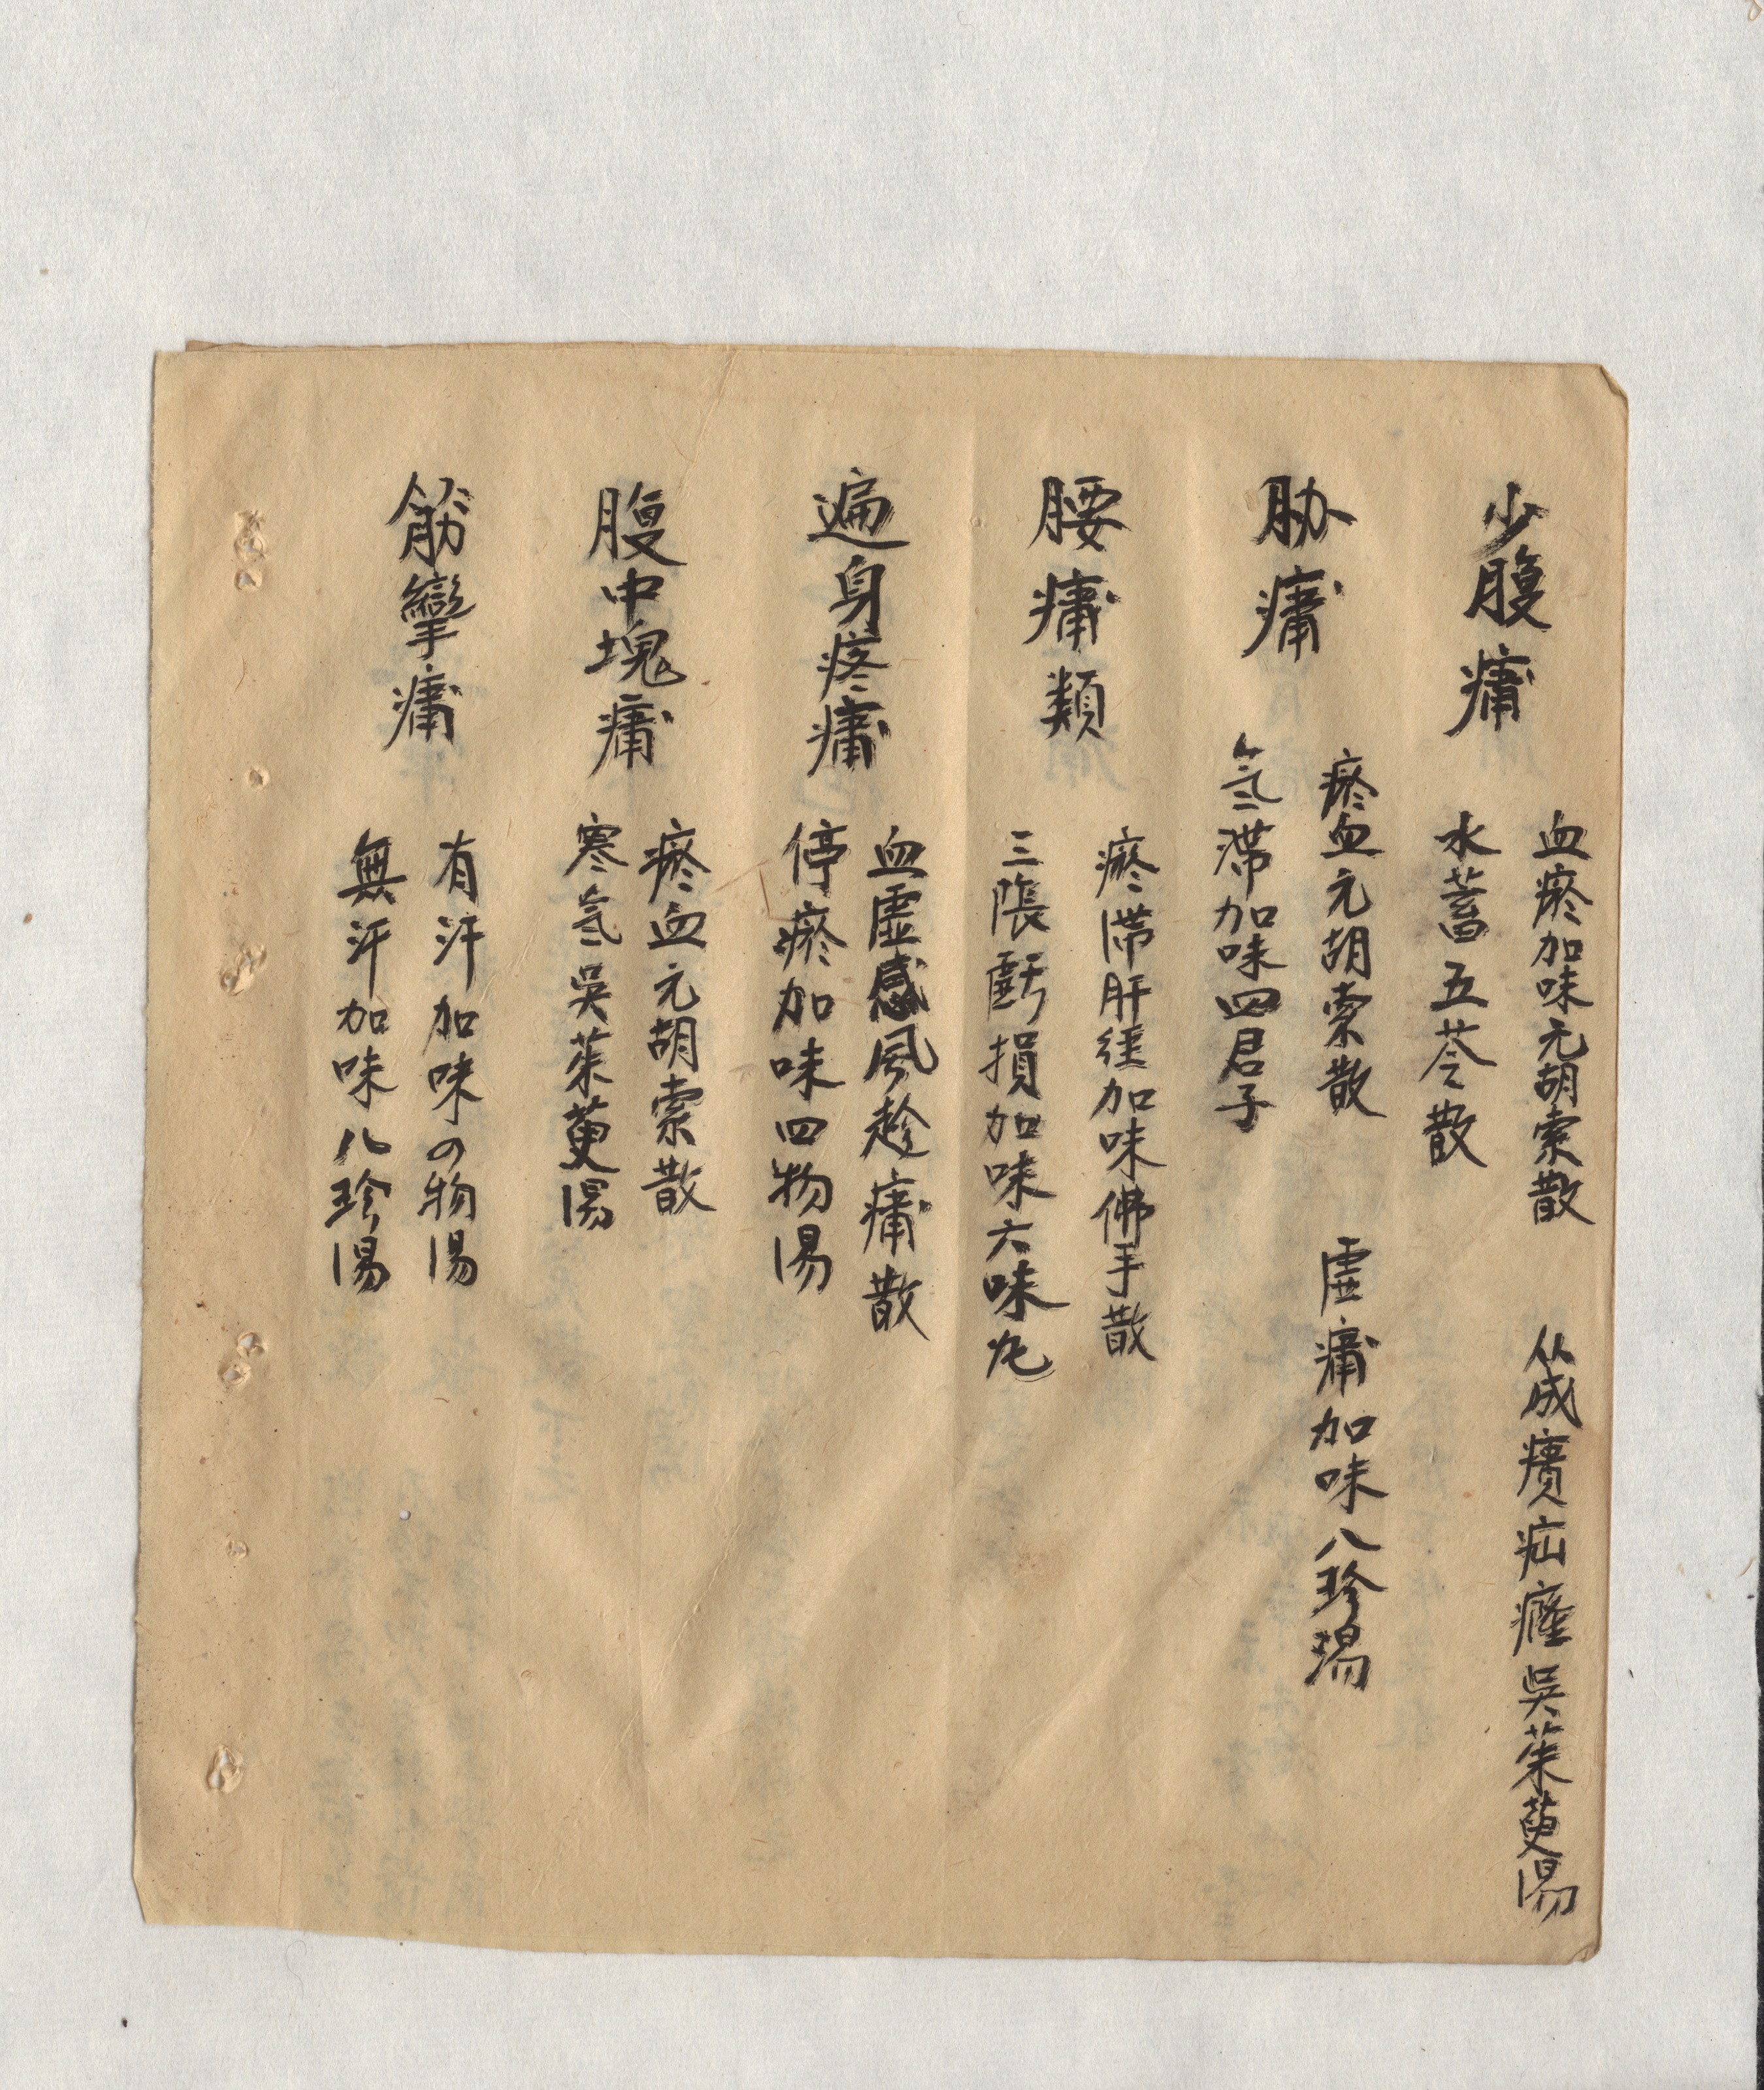 少腹痛
血瘀加味元胡索散
水蓄五苓散
疝癥吳茱萸湯
胁痛
瘀血元胡索散
氣滯加味四君子
虛痛加味八珍湯
腰痛類
瘀滯肝经加味佛手散
三脹虧損加味六味丸
遍身疼痛
血虛感風趁痛散
停瘀加味四物湯
腹中塊痛
瘀血元胡索散
寒氣吳茱萸湯
筋攣痛
有汗加味の物湯
無汗加味八珍湯